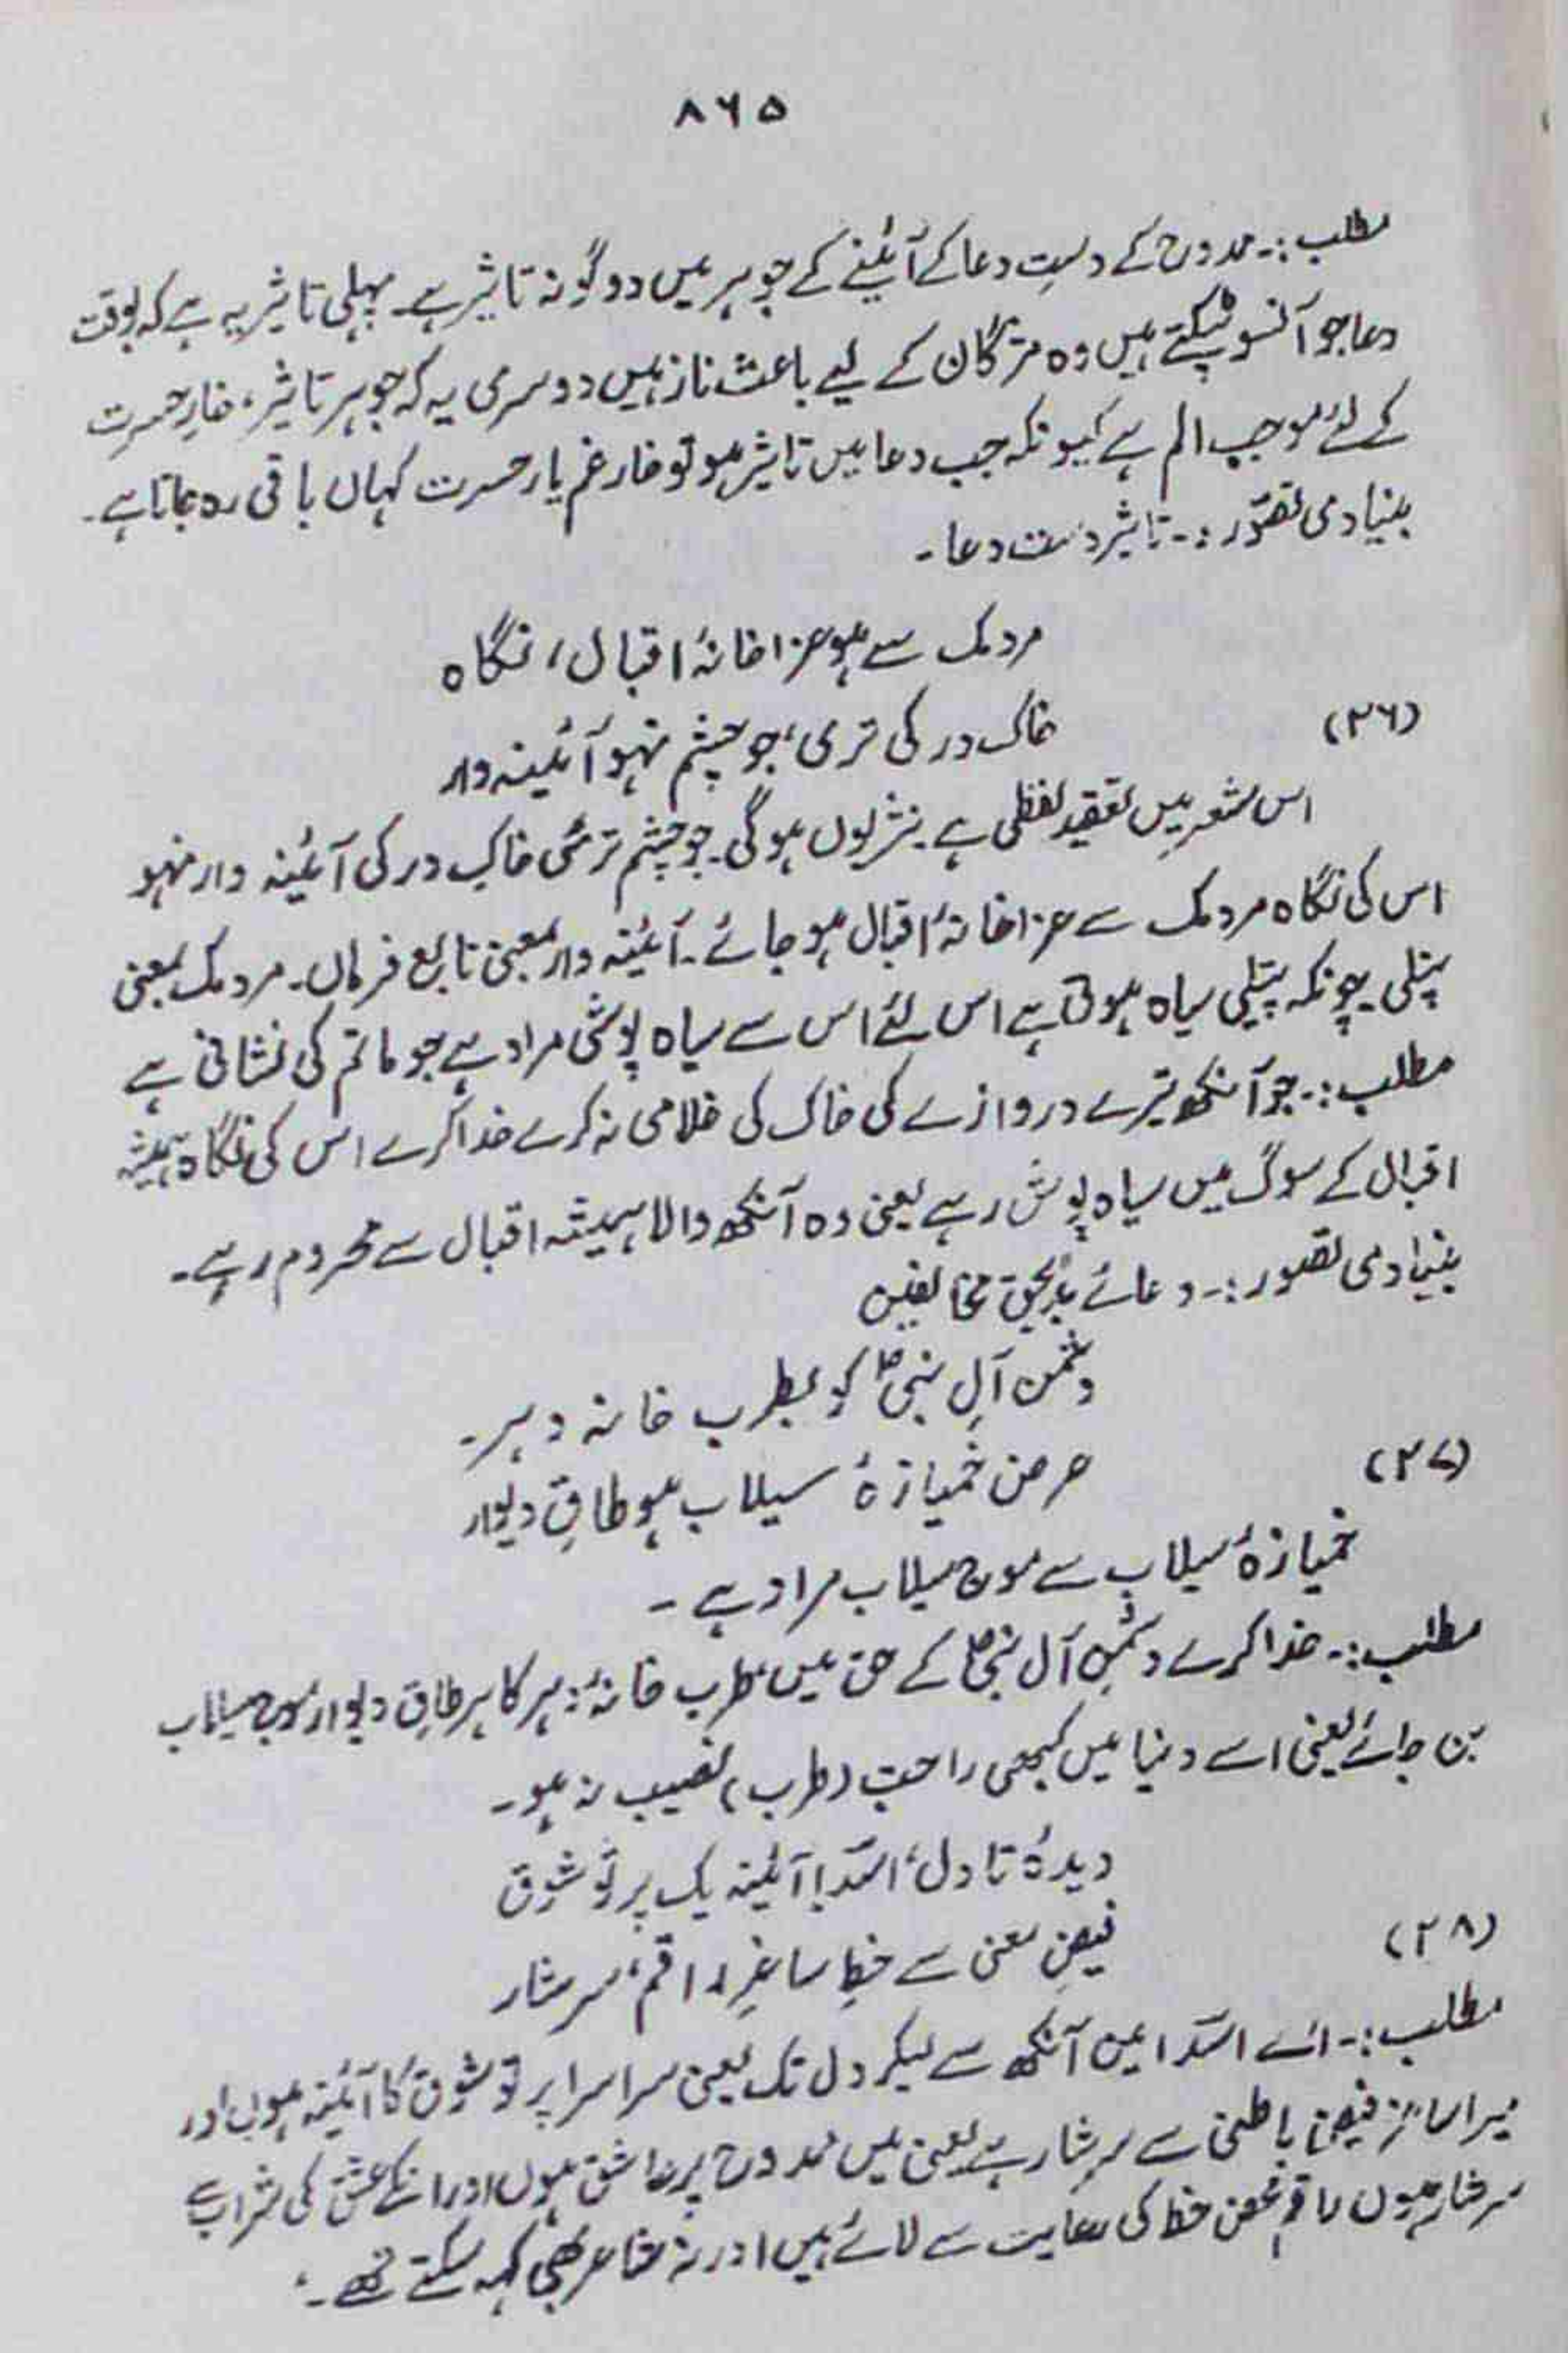 ۸۶۵
مطلب :۔ ممدوح کے دستِ دعا کے آئینے کے جوہر میں دو گونہ تاثیر ہے۔ پہلی تاثیر یہ ہے کہ بوقت
دعا جو آنسو ٹپکتے ہیں وہ مژگان کے لیے باعث ناز ہیں دوسری یہ کہ جوہر تاثیر، خارِ حسرت
کے لئے موجبِ الم ہے کیونکہ جب دعا میں تاثیر ہو تو خار غم یار حسرت کہاں باقی رہ جاتا ہے۔
بنیادی تصوّر :۔ تاثیر دست دعا۔
مردمک سے ہو عزا خانۂ اقبال، نگاہ
(۲۶)
خاک در کی تری، جو چشم نہو آئینہ دار
اس شعر میں تعقید لفظی ہے۔ نثر یوں ہوگی۔ جو چشم تری خاکِ در کی آئینہ دار نہو
اس کی نگاہ مردمک سے عزا خانۂ اقبال ہو جائے۔ آئینہ دار بمعنی تابع فرماں۔ مردمک بمعنی
پتلی چونکہ پتلی سیاہ ہوتی ہے اس لئے اس سے سیاہ پوشی مراد ہے جو ماتم کی نشانی ہے
مطلب :۔ جو آنکھ تیرے دروازے کی خاک کی غلامی نہ کرے خدا کرے اس کی نگاہ ہمیشہ
اقبال کے سوگ میں سیاہ پوش رہے یعنی وہ آنکھ والا ہمیشہ اقبال سے محروم رہے۔
بنیادی تصور :۔ دعائے بد بحق مخالفین
دشمن آلِ نبیؐ کو بطرب خانہ دہر۔
(۲۷)
عرض خمیازۂ سیلاب ہو طاقِ دیوار
خمیازۂ سیلاب سے موج سیلاب مراد ہے ۔
مطلب :۔ خدا کرے دشمنِ آل نبیؐ کے حق میں طرب خانۂ دہر کا ہر طاقِ دیوار موج سیلاب
بن جائے یعنی اسے دنیا میں کبھی راحت (طرب) نصیب نہ ہو۔
دیدۂ تا دل، اسؔد! آئینہ یک پرتَو شوق
(۲۸)
فیضِ معنی سے خطِ ساغرِ راقم، سرشار
مطلب :۔ اے اسؔد! میں آنکھ سے لیکر دل تک یعنی سراسر پرتو شوق کا آئینہ ہوں اور
میرا ساغر فیضِ باطنی سے سرشار ہے یعنی میں ممدوح پر عاشق ہوں اور انکے عشق کی شراب سے
سرشار ہوں راقم محض خط کی رعایت سے لائے ہیں ورنہ شاعر بھی کہہ سکتے تھے۔